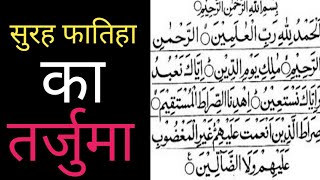 सुरह फातिहा
का
तर्जुमा
بِسْمِ اللهِ الرَّحْمٰنِ الرَّحِيْمِ
اَلْحَمْدُ لِلّٰهِ رَبِّ الْعٰلَمِيْنَ ○ الرَّحْمٰنِ
الرَّحِيْمِ ○ مٰلِكِ يَوْمِ الدِّيْنِ ○ اِيَّاكَ نَعْبُدُ
وَاِيَّاكَ نَسْتَعِيْنُ ○ اِهْدِنَا الصِّرَاطَ الْمُسْتَقِيْمَ ○
صِرَاطَ الَّذِيْنَ اَنْعَمْتَ عَلَيْهِمْ غَيْرِ الْمَغْضُوْبِ
عَلَيْهِمْ وَلَا الضَّآلِّيْنَ ○